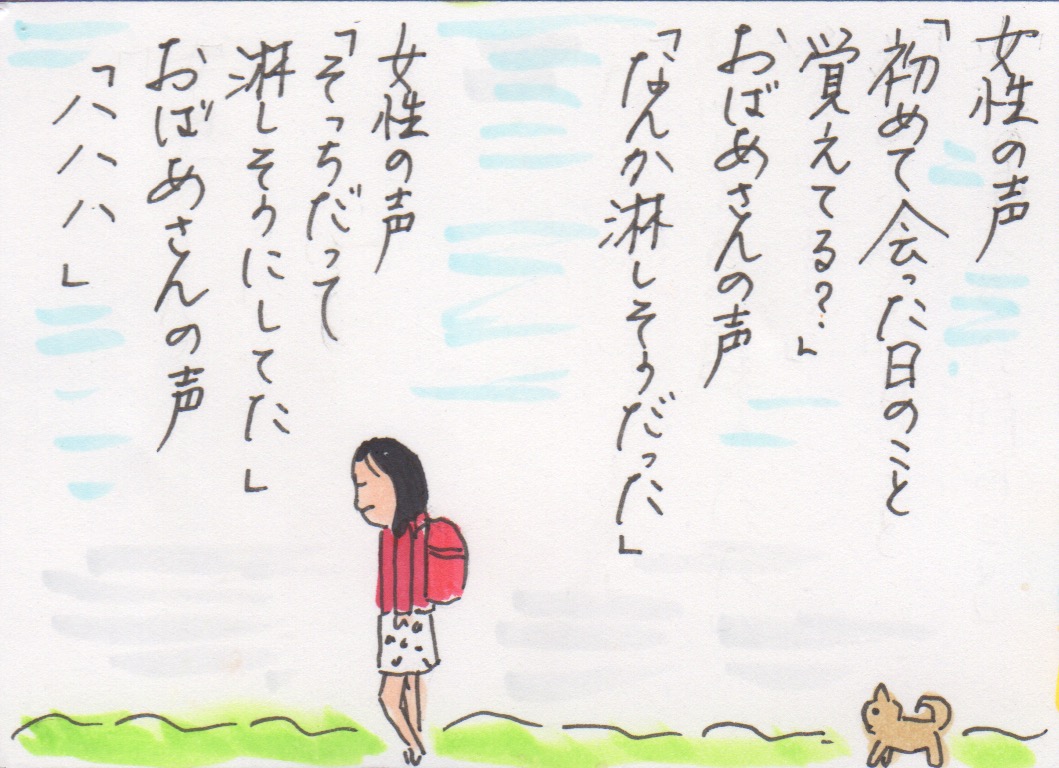 女性の声
「初めて会った日のこと
覚えてる?」
おばあさんの声
「なんか淋しそうだった」
女性の声
「そっちだって
淋しそうにしてた」
おばあさんの声
「ハハハ」